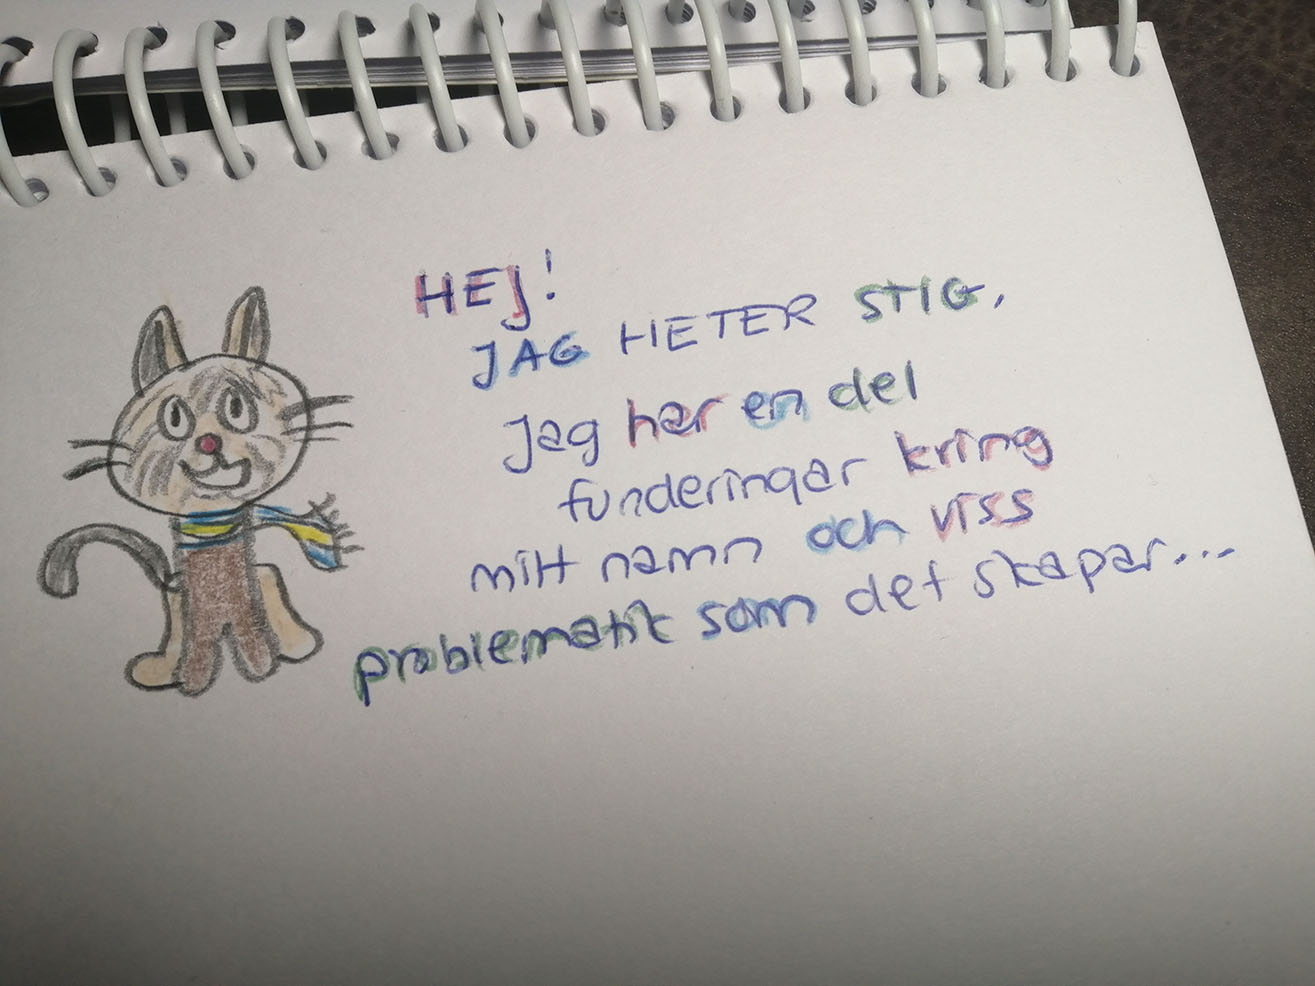 HEJ!
JAG HETER STIG,
Jag har en del
funderingar kring
mitt namn och viss
problematik som det skapar...